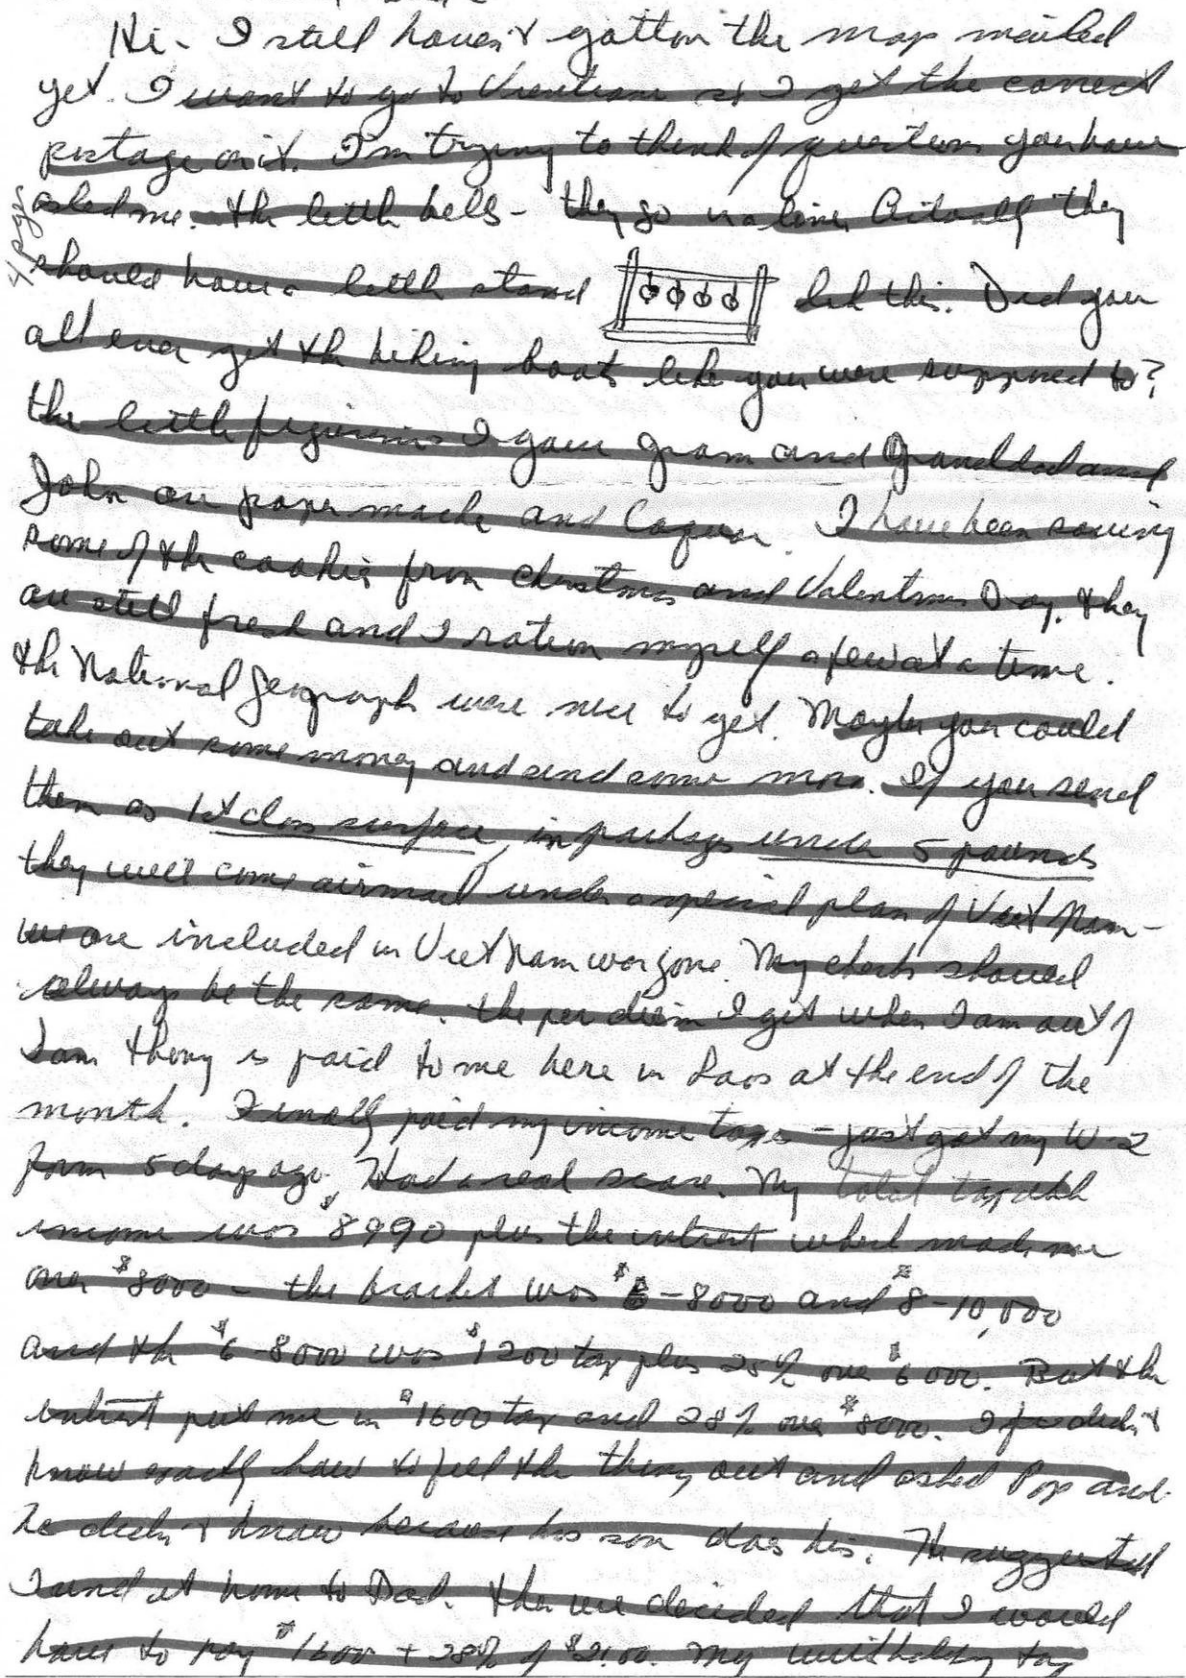 Hi - I still haven't gotten the map mailed
yet. I want to go to Vientiane so I get the correct
postage on it. I'm trying to think of questions you have
asked me. The little bells - they go in a line. Actually they
4 pgs
should have a little stand like this. Did you
all ever get the hiking boots like you were supposed to?
the little figurines I gave Gram and Granddad and
John are paper mache and Laquer. I have been saving
some of the cookies from Christmas and Valentines Day. they
are still fresh and I ration myself a few at a time.
the National Geograph were nice to get. Maybe you could
take out some money and send some more. If you send
them as 1st class surface, in packages under 5 pounds
they will come airmail under a special plan of Viet Nam -
we are included in Viet Nam war zone. My checks should
always be the same. the per diem I get when I am out of
Lam Thong is paid to me here in Laos at the end of the
month. I finally paid my income taxes - just got my W-2
form 5 days ago. Had a real scare. My total taxable
income was $8990 plus the intrest which made me
over $8000 - the bracket was $6-8000 and $8-10,000
and the $6-8000 was $1200 tax plus 25% over $6000. But the
intrest put me in $1600 tax and 28% over $8000. I didn't
know exactly how to fill the thing out and asked Pop and
he didn't know because his son does his. He suggested
I send it home to Dad. then we decided that I would
have to pay $1600 + 28% of My witholding tax